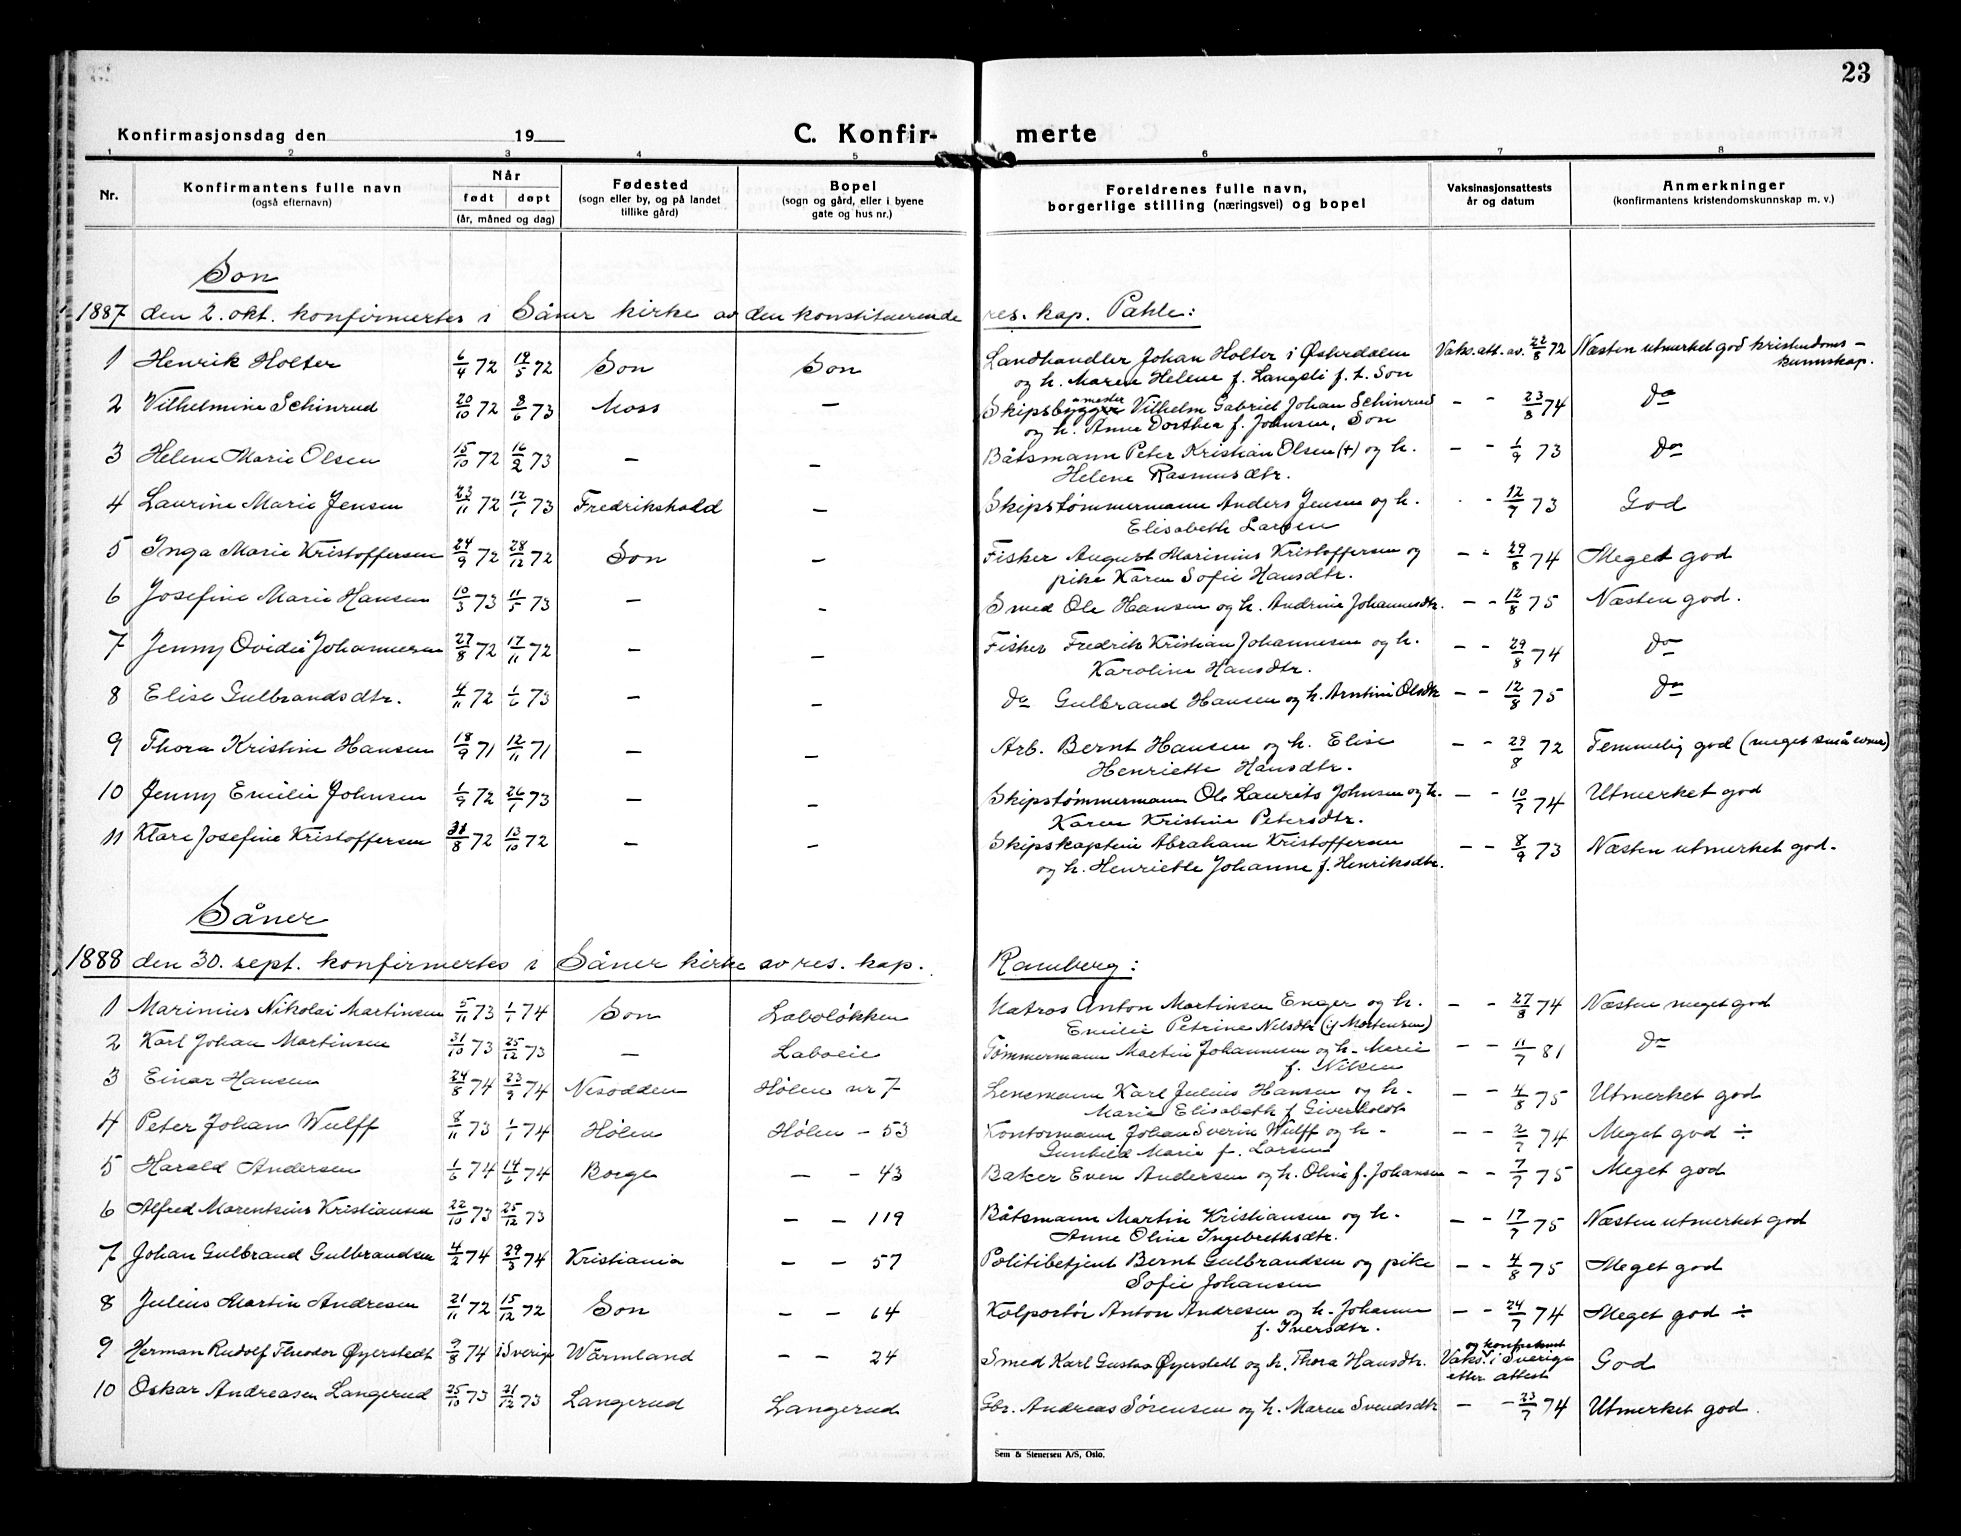 23
Konfirmasjonsdag den 19 C. Konfir- merte
1 2 3 4 5 6 7 8
Nr. Konfirmantens fulle navn (også efternavn) Når født døpt (år, måned og dag) Fødested (sogn eller by, og på landet tillike gård) Bopel (sogn og gård, eller i byene gate og hus nr.) Foreldrenes fulle navn, borgerlige stilling (næringsvei) og bopel Vaksinasjonsattests år og datum Anmerkninger (konfirmantens kristendomskunnskap m. v.)
Son
1887 den 2. okt. konfirmertes i Såner kirke av den konstituerende res. kap. Pahle:
1 Henrik Holter 6/4 72 19/5 72 Son Son Landhandler Johan Holter i Østerdalen Vaks.att. av. 22/8 72 Næsten utmerket god kristendoms-
og h. Maren Helene f. Langsli f. t. Son kunnskap.
2 Vilhelmine Schinrud 20/10 72 8/6 73 Moss — Skipsbyggmester Vilhelm Gabriel Johan Schinrud — - 23/8 74 do
og h. Anne Dorthea f. Johnsen, Son
3 Helene Marie Olsen 15/10 72 16/2 73 — — Båtsmann Peter Kristian Olsen (+) og h. — - 1/9 73 do
Helene Rasmusdtr.
4 Laurine Marie Jensen 23/11 72 12/1 73 Fredrikshald — Skipstømmermann Anders Jensen og h. - - 12/7 73 God
Elisabeth Larsen
5 Inga Marie Kristoffersen 24/9 72 28/12 72 Son — Fisker August Marinius Kristoffersen og — - 29/8 74 Meget god
pike Karen Sofie Hansdtr.
6 Josefine Marie Hansen 10/3 73 11/5 73 — - Smed Ole Hansen og h. Andrine Johannesdtr. — - 12/8 75 Næsten god.
7 Jenny Ovidie Johannesen 27/8 72 17/11 72 — — Fisker Fredrik Kristian Johannesen og h. — - 29/8 74 do
Karoline Hansdtr.
8 Elise Gulbrandsdtr. 4/11 72 1/6 73 — — do Gulbrand Hansen og h. Arntine Olsdtr — - 12/8 75 do
9 Thora Kristine Hansen 18/9 71 12/11 71 — — Arb. Bernt Hansen og h. Elise — - 29/8 72 Temmelig god (meget små evner)
Henriette Hansdtr.
10 Jenny Emilie Johnsen 1/9 72 26/1 73 — — Skipstømmermann Ole Laurits Johnsen og h. — - 10/7 74 Utmerket god
Karen Kristine Petersdtr.
11 Klara Josefine Kristoffersen 31/8 72 13/10 72 — — Skipskaptein Abraham Kristoffersen — - 8/9 73 Næsten utmerket god.
og h. Henriette Johanne f. Henriksdtr.
Såner
1888 den 30. sept. konfirmertes i Såner kirke av res. kap. Ramberg:
1 Marinius Nikolai Martinsen 5/11 73 1/1 74 Son Laboløkken Matros Anton Martinsen Enger og h. — - 27/8 74 Næsten meget god
Emilie Petrine Nilsdtr (if Mortensen)
2 Karl Johan Martinsen 31/10 73 25/12 73 — Laboeie Tømmermann Martin Johannesen og h. Marie — - 11/7 81 do
f. Nilsen
3 Einar Hansen 24/8 74 23/9 74 Nesodden Hølen nr 7 Lensmann Karl Julius Hansen og h. — - 4/8 75 Utmerket god
Marie Elisabeth f. Giverholdt
4 Peter Johan Wulff 8/11 73 1/1 74 Hølen Hølen - 53 Kontormann Johan Sverin Wulff og h. — - 2/7 74 Meget god ÷
Gunhild Marie f. Larsen
5 Harald Andersen 1/6 74 14/6 74 Borge — - 43 Baker Even Andersen og h. Oline f. Johansen — - 7/7 75 Meget god
6 Alfred Marentius Kristiansen 22/10 73 25/12 73 — - 119 Båtsmann Martin Kristiansen og h. — - 17/7 75 Næsten utmerket god
Anne Oline Ingebrethsdtr.
7 Johan Gulbrand Gulbrandsen 4/2 74 29/3 74 Kristiania — - 57 Politibetjent Bernt Gulbrandsen og pike — - 4/8 75 Meget god
Sofie Johansen
8 Julius Martin Andresen 21/11 72 15/12 72 Son — - 64 Kolportør Anton Andresen og h. Johanne — - 24/7 74 Meget god ÷
f. Iversdtr.
9 Herman Rudolf Theodor Øyerstedt 9/8 74 i Sverige Wärmland — - 24 Smed Karl Gustav Øyerstedt og h. Thora Hansdtr. Vaks. og konfirmert i Sverige etter attest God
10 Oskar Andreasen Langerud 25/10 73 21/12 73 Langerud Langerud Gbr. Andreas Sørensen og h. Maren Svendsdtr — - 23/7 74 Utmerket god.
Sem & Stenersen A/S, Oslo.